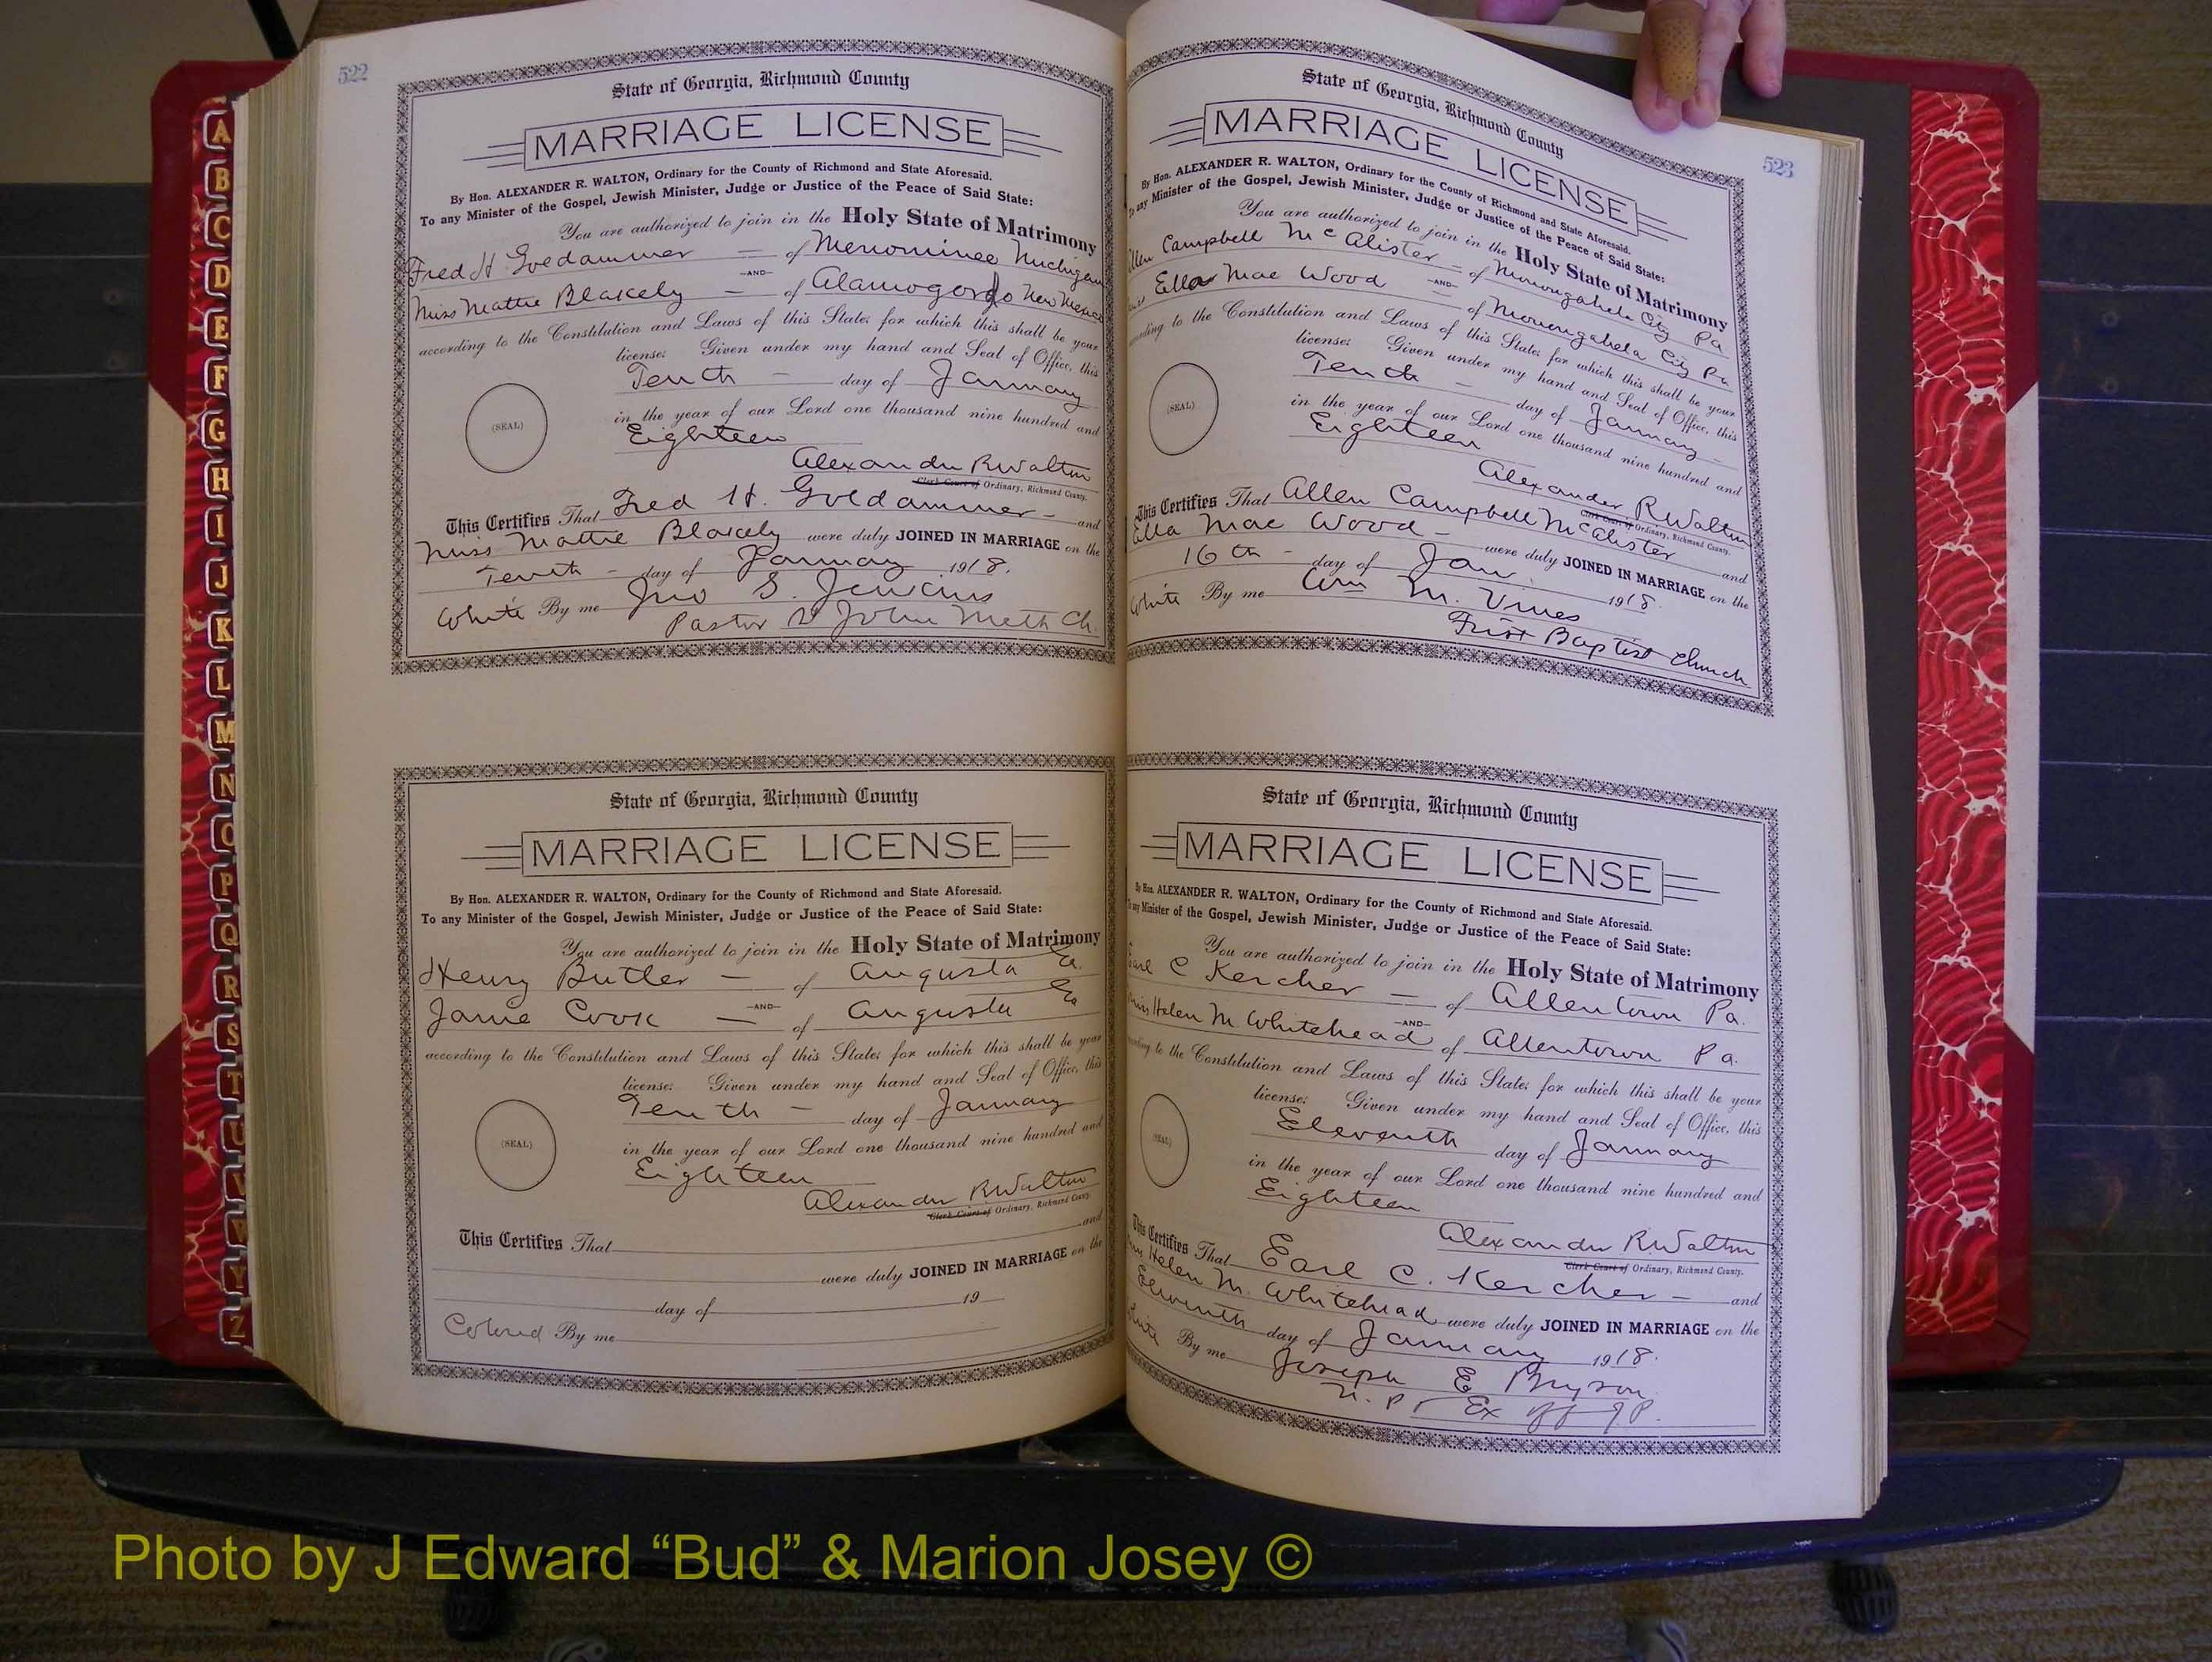 522
State of Georgia, Richmond County
MARRIAGE LICENSE
By Hon. ALEXANDER R. WALTON, Ordinary for the County of Richmond and State Aforesaid.
To any Minister of the Gospel, Jewish Minister, Judge or Justice of the Peace of Said State:
You are authorized to join in the Holy State of Matrimony
Fred H Goldammer — of Menominee Michigan
—AND—
Miss Mattie Blakely — of Alamogordo New Mexico
according to the Constitution and Laws of this State; for which this shall be your
license: Given under my hand and Seal of Office, this
Tenth — day of January
in the year of our Lord one thousand nine hundred and
Eighteen
(SEAL)
Alexander R Walton
Clerk Court of Ordinary, Richmond County.
This Certifies That Fred H. Goldammer — and
Miss Mattie Blakely were duly JOINED IN MARRIAGE on the
Tenth — day of January 1918.
White By me Jno S. Jenkins
Pastor St John Meth Ch.
State of Georgia, Richmond County
MARRIAGE LICENSE
By Hon. ALEXANDER R. WALTON, Ordinary for the County of Richmond and State Aforesaid.
To any Minister of the Gospel, Jewish Minister, Judge or Justice of the Peace of Said State:
You are authorized to join in the Holy State of Matrimony
Henry Butler — of Augusta Ga.
—AND—
Janie Cook — of Augusta Ga
according to the Constitution and Laws of this State; for which this shall be your
license: Given under my hand and Seal of Office, this
Tenth — day of January
in the year of our Lord one thousand nine hundred and
Eighteen
(SEAL)
Alexander R Walton
Clerk Court of Ordinary, Richmond County.
This Certifies That and
were duly JOINED IN MARRIAGE on the
day of 19
Colored By me
523
State of Georgia, Richmond County
MARRIAGE LICENSE
By Hon. ALEXANDER R. WALTON, Ordinary for the County of Richmond and State Aforesaid.
To any Minister of the Gospel, Jewish Minister, Judge or Justice of the Peace of Said State:
You are authorized to join in the Holy State of Matrimony
Allen Campbell McAlister — of Monongahela City Pa
—AND—
Ella Mae Wood — of Monongahela City Pa
according to the Constitution and Laws of this State; for which this shall be your
license: Given under my hand and Seal of Office, this
Tenth — day of January —
in the year of our Lord one thousand nine hundred and
Eighteen
(SEAL)
Alexander R Walton
Clerk Court of Ordinary, Richmond County.
This Certifies That Allen Campbell McAlister and
Ella Mae Wood — were duly JOINED IN MARRIAGE on the
16th — day of Jan. 1918.
White By me Wm M. Vines
First Baptist Church
State of Georgia, Richmond County
MARRIAGE LICENSE
By Hon. ALEXANDER R. WALTON, Ordinary for the County of Richmond and State Aforesaid.
To any Minister of the Gospel, Jewish Minister, Judge or Justice of the Peace of Said State:
You are authorized to join in the Holy State of Matrimony
Earl C Kercher — of Allentown Pa.
—AND—
Miss Helen M. Whitehead of Allentown Pa.
according to the Constitution and Laws of this State; for which this shall be your
license: Given under my hand and Seal of Office, this
Eleventh day of January
in the year of our Lord one thousand nine hundred and
Eighteen
(SEAL)
Alexander R Walton
Clerk Court of Ordinary, Richmond County.
This Certifies That Earl C. Kercher — and
Miss Helen M. Whitehead were duly JOINED IN MARRIAGE on the
Eleventh day of January 1918.
White By me Joseph E Bryson
N. P & Ex off J P.
A
B
C
D
E
F
G
H
I
J
K
L
M
N
O
P
Q
R
S
T
U
V
W
Y
Z
Photo by J Edward “Bud” & Marion Josey ©